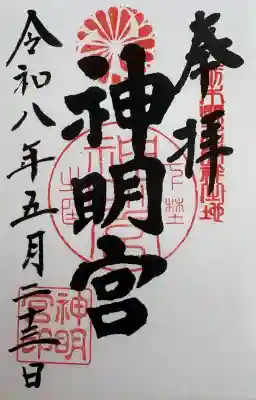 奉拝
神明宮
令和八年五月二十三日
神明
宮印